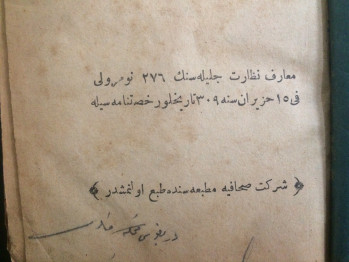 معارف نظارت جلیله‌سنك ٢٧٦ نومرولی
فی ١٥ حزیران سنه ٣٠٩ تاریخلو رخصتنامه سیله
﴿ شرکت صحافیه مطبعه سنده طبع اولنمشدر ﴾